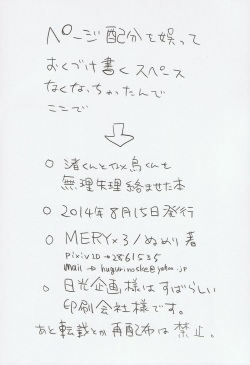 ページ配分を誤って
おくづけ書くスペース
なくなっちゃたんで
ここで
○ 渚くんと
無理矢理絡ませた本
○ 2014年8月15日発行
○ MERY×3/ぬめり 著
pixivID→2861535
mail→
○ 日光企画様はすばらしい
印刷会社様です。
あと転載とか再配布は禁止。